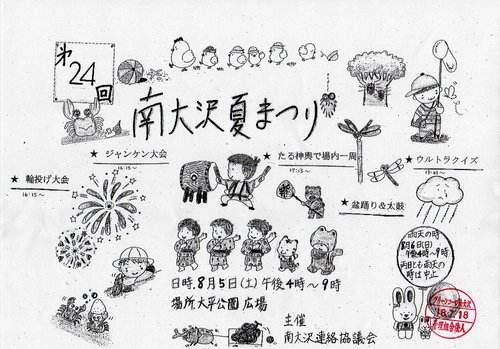 第
24
回
南大沢夏まつり
★ ジャンケン大会
16:15～
★ たる神輿で場内一周
17:15～
★ ウルトラクイズ
★ 輪投げ大会
16:15～
★ 盆踊り&太鼓
雨天の時
8月6日(日)
午後4時～9時
両日とも雨天の
時は中止
日時、8月5日(土)午後4時～9時
場所大平公園広場
主催
南大沢連絡協議会
18.7.18
管理組合法人